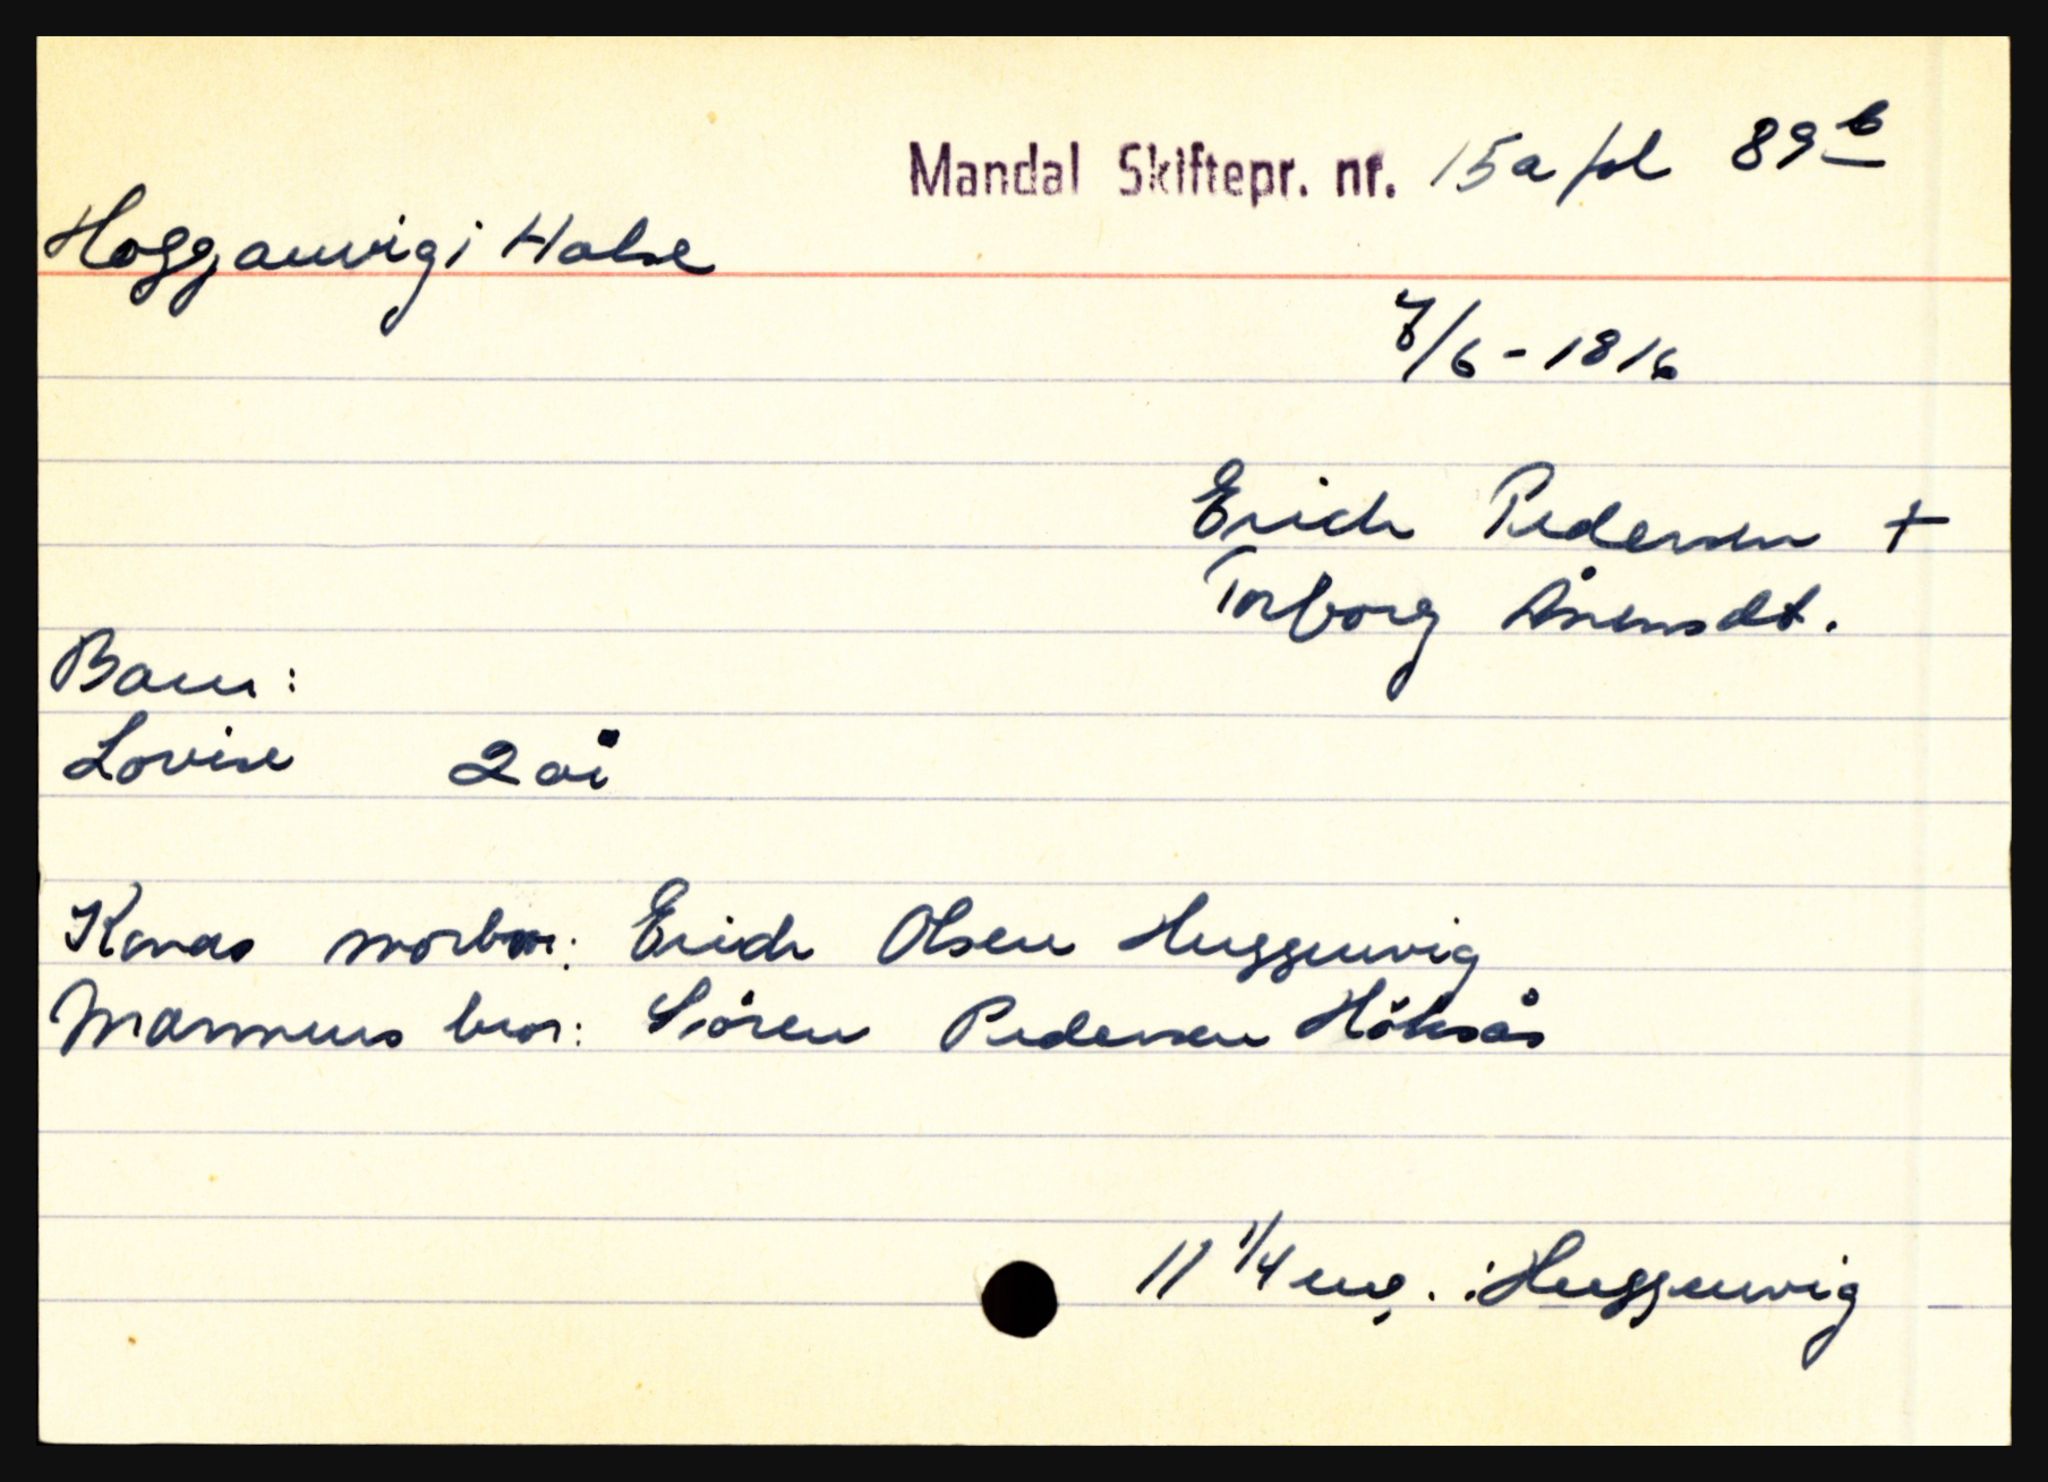 Mandal Skiftepr. nr. 15a fol 89 b
Hogganvig i Halse
7/6 - 1816
Erich Pedersen +
Torborg Ånensdt.
Barn:
Lovise 2 år
Konas morbror: Erich Olsen Huggenvig
Mannens bror: Sören Pedersen
11 1/4 eng. i Huggenvig